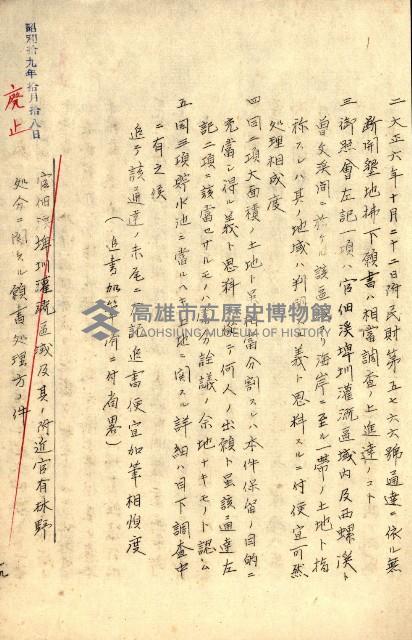 二大正六年十月二十二日附民財第五七六六號通達ニ依ル無
斷開墾地拂下願書ハ相當調查ノ上進達ノコト
三御照會左記一項ハ官佃溪埤圳灌漑區域內及西螺溪ト
曾文溪間ニ於ケル該區域ヨリ海岸ニ至ル一帶ノ土地ト指
称スレハ其ノ地域ハ判明ノ義ト思料スルニ付便宜可然
處理相成度
四同二項大面積ノ土地ト雖當分割スレハ本件保留ノ目的ニ
充當シ得ル義ト思料
ニテ何人ノ出願ト雖該通達左
記二項ニ該當セサルモノ
分詮議ノ余地ナキモノト認ム
五同三項貯水池ニ當ルヘキ
地ニ関スル詳細ハ目下調查中
ニ有之候
追テ該通達ノ末尾ニ
記追書便宜加筆相煩度
(追書加筆濟ニ付省畧)
官佃溪埤圳灌漑區域及其ノ附近官有林野
処分ニ関スル願書処理方ノ件
昭和拾九年拾月拾八日
廃止
高雄市立歷史博物館
KAOHSIUNG MUSEUM OF HISTORY